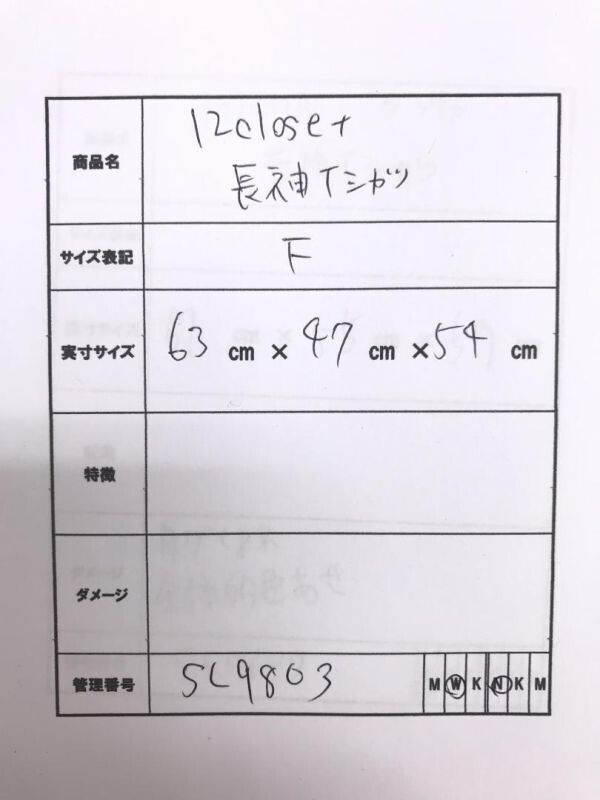 商品名 12closet
長袖Tシャツ
サイズ表記 F
実寸サイズ 63 cm × 47 cm × 54 cm
特徴
ダメージ
管理番号 SL9803 M W K N K M